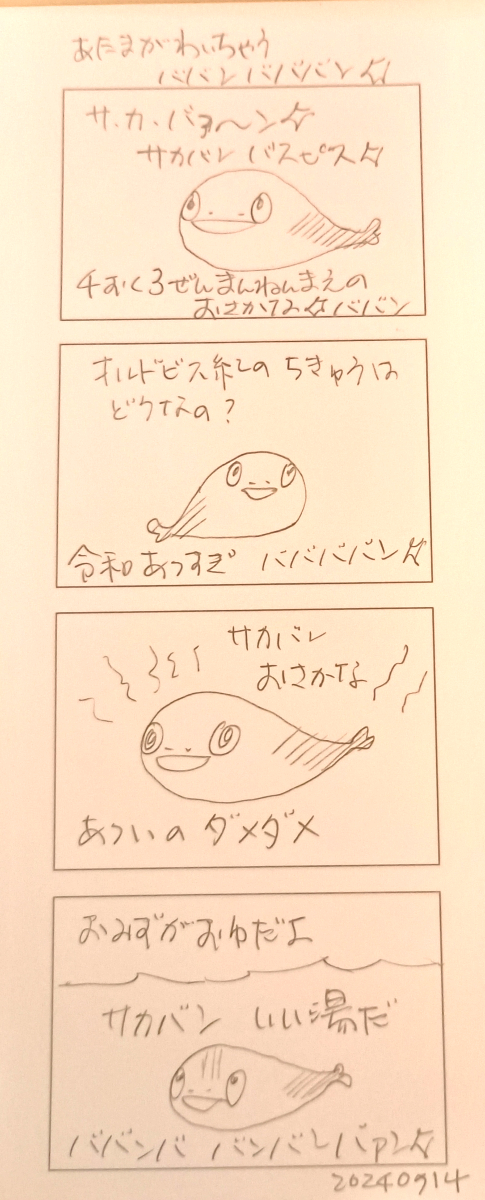 あたまがわいちゃう
ババンバババン☆
サ・カ・バァ〜ン☆
サカバンバスピス☆
4おく3ぜんまんねんまえの
おさかな☆ババン
オルドビス紀の ちきゅうは
どうなの？
令和あつすぎ ババババン☆
サカバン
おさかな
あついの ダメダメ
おみずがおゆだよ
サカバン いい湯だ
ババンバ バンバンバァン☆
20240914